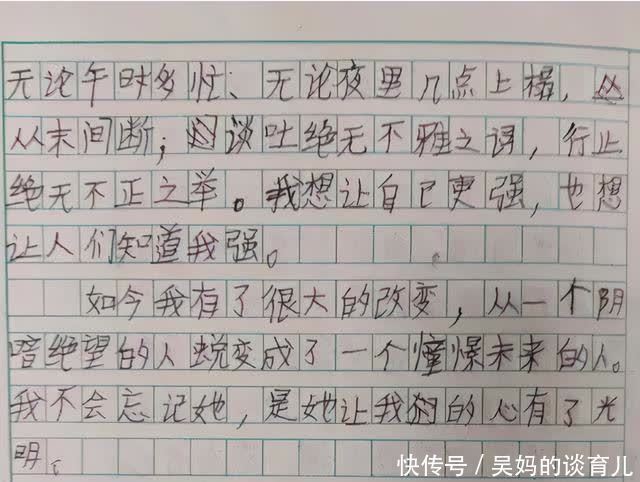 无论午时多忙、无论夜里几点上榻，
从未间断；谈吐绝无不雅之词，行止
绝无不正之举。我想让自己更强，也想
让人们知道我强。
如今我有了很大的改变，从一个阴
暗绝望的人蜕变成了一个憧憬未来的人。
我不会忘记她，是她让我的心有了光
明。
快传号／吴妈的谈育儿